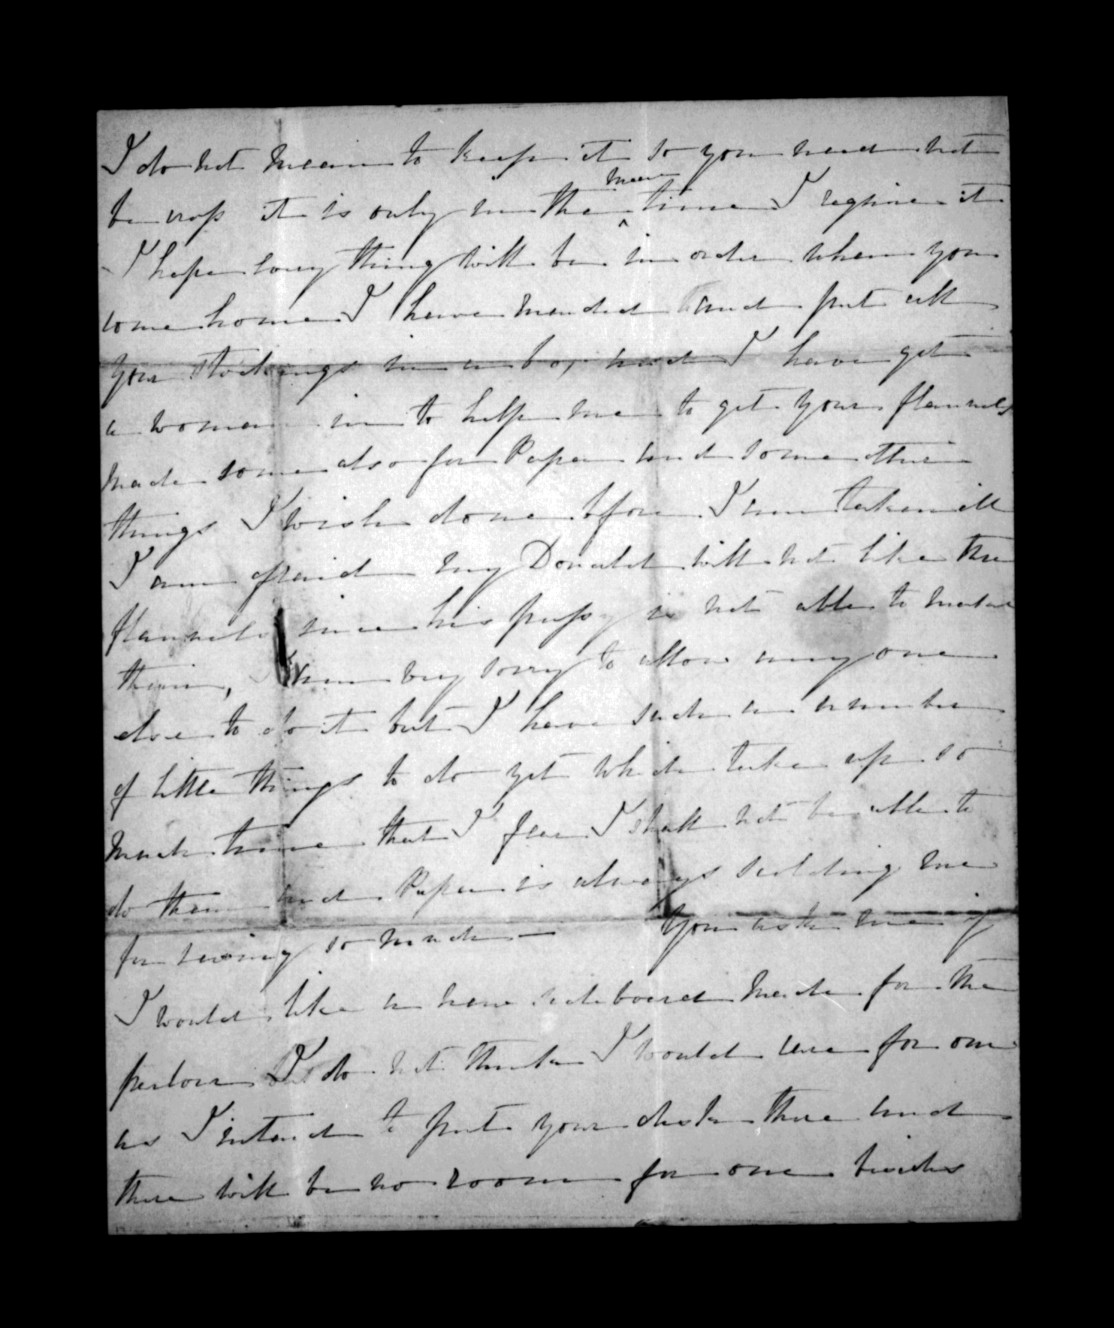 I do not mean to keep it so you need not
be cross it is only in the mean time I require it
I hope every thing will be in order when you
come home I have mended and put all
your Stockings in a box and I have got
a woman in to help me to get your flannels
made some also for Papa and some other
things I wish done before I am taken ill
I am afraid my Donald will not like the
flannels since his pussy is not able to make
them, I am very sorry to allow any one
else to do it but I have such a number
of little things to do yet which take up so
much time that I fear I shall not be able to
do them and Papa is always scolding me
for sewing so much — You ask me if
I would like a new sideboard made for the
parlour I do not think I would care for one
as I intend to put your desk there and
there will be no room for one besides